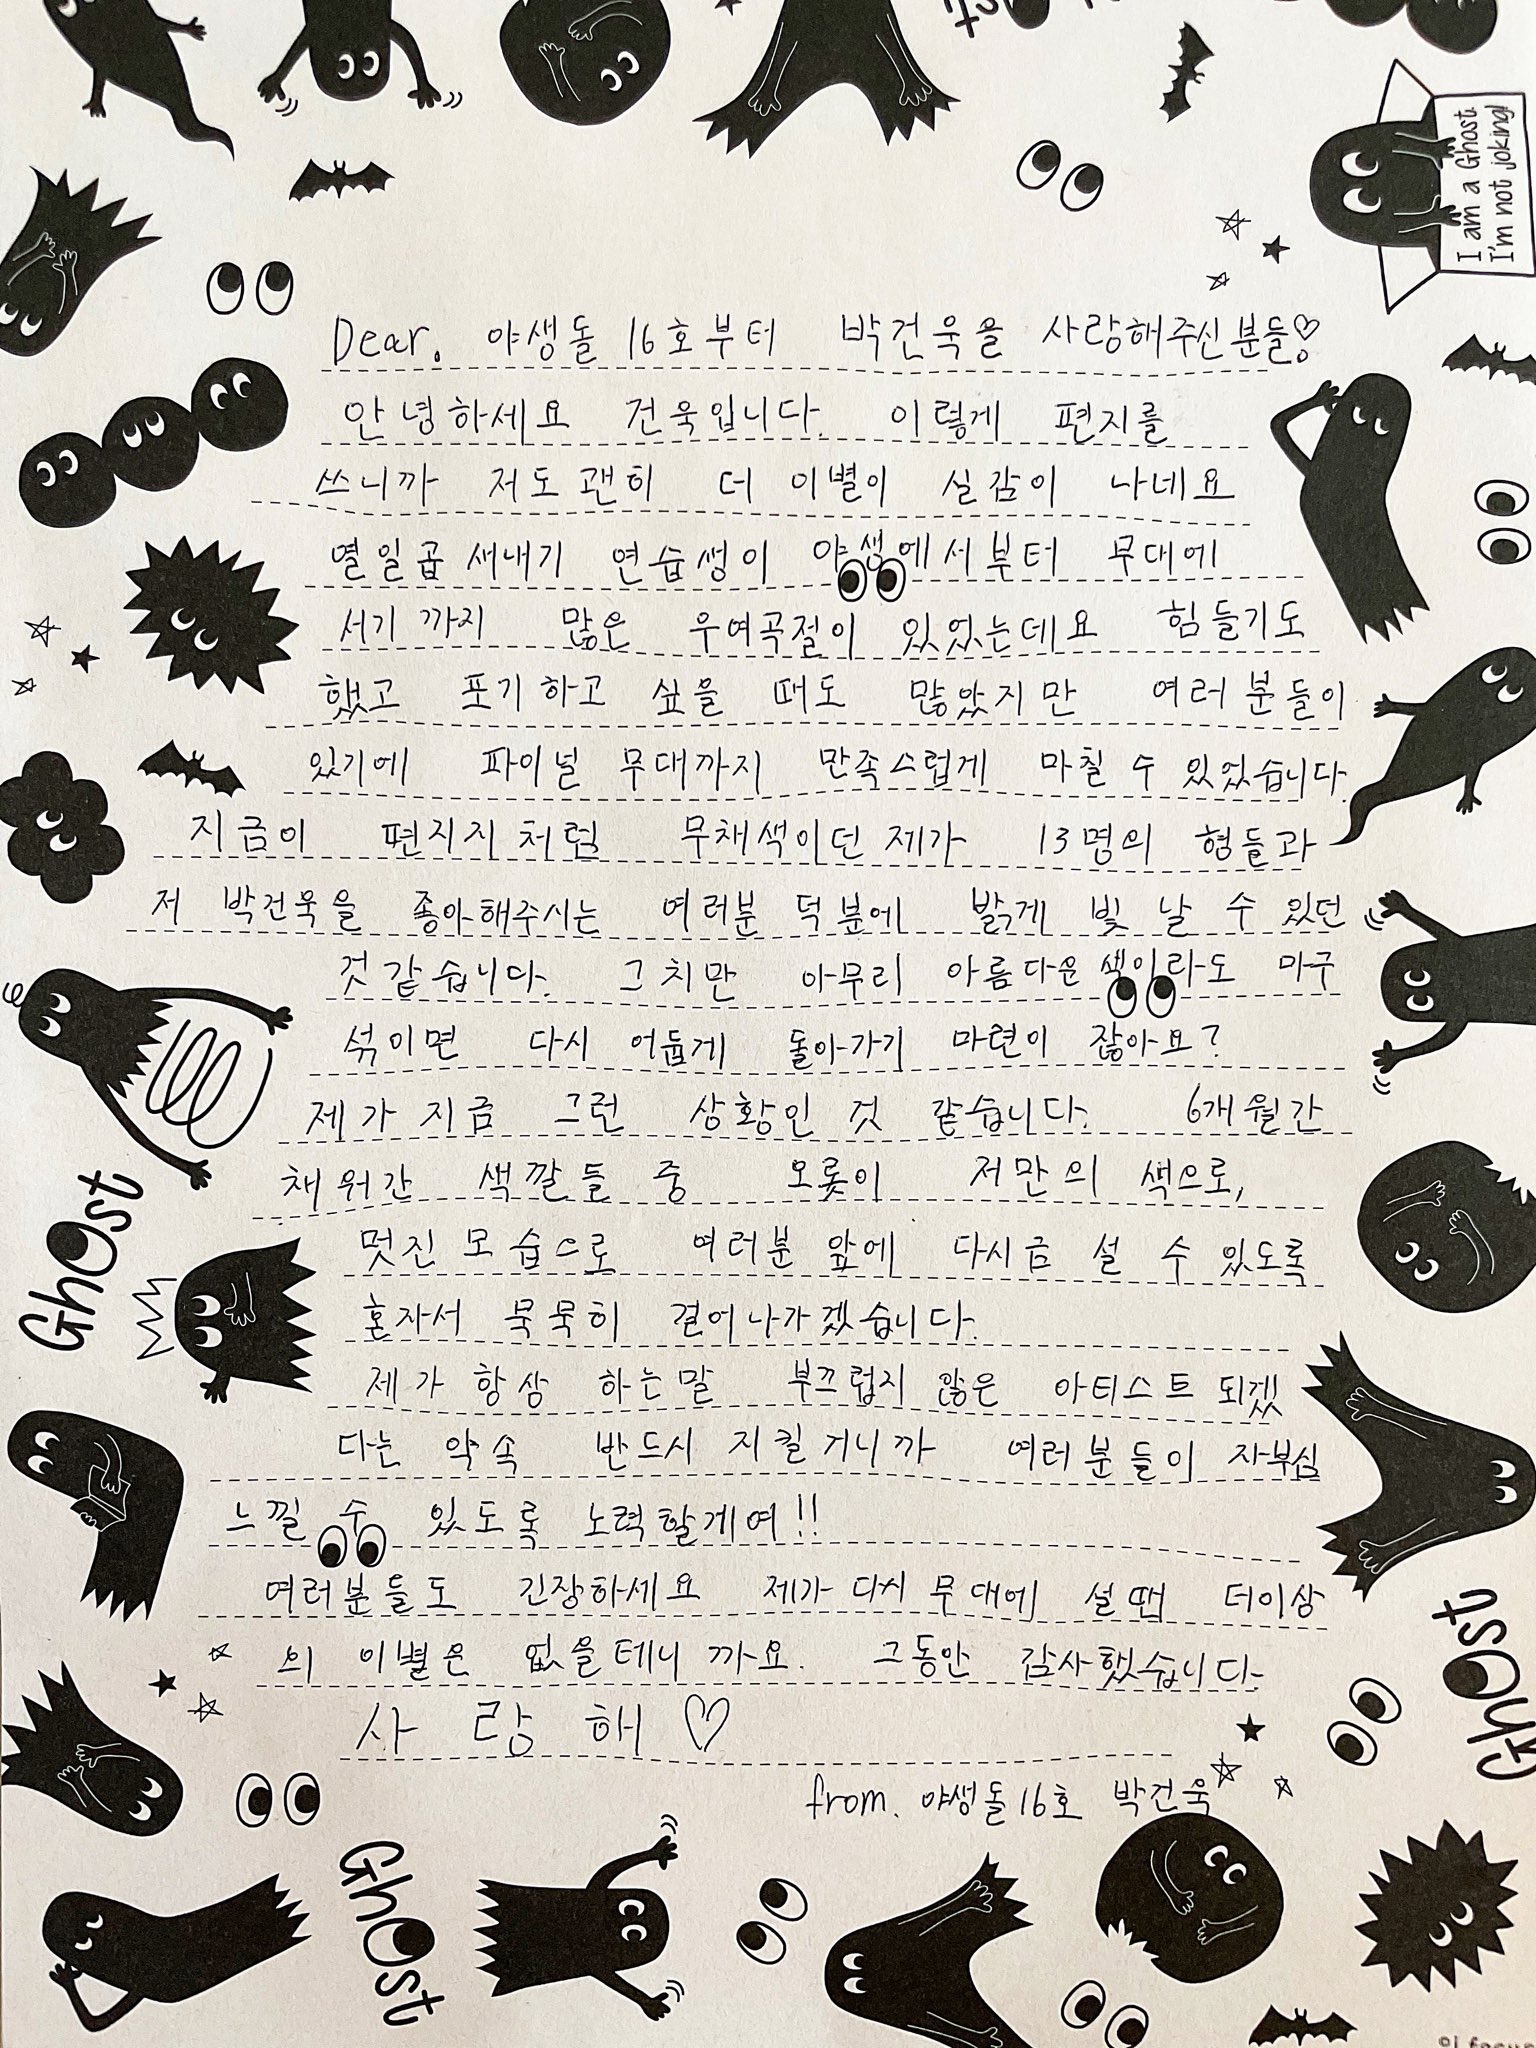 Dear. 야생돌 16호부터 박건욱을 사랑해주신분들♡
안녕하세요 건욱입니다. 이렇게 편지를
쓰니까 저도괜히 더 이별이 실감이 나네요
열일곱 새내기 연습생이 야생에서부터 무대에
서기까지 많은 우여곡절이 있었는데요 힘들기도
했고 포기하고 싶을 때도 많았지만 여러분들이
있기에 파이널 무대까지 만족스럽게 마칠 수 있었습니다.
지금이 편지지처럼 무채색이던 제가 13명의 형들과
저 박건욱을 좋아해주시는 여러분 덕분에 밝게 빛 날 수 있던
것같습니다. 그치만 아무리 아름다운 색이라도 마구
섞이면 다시 어둡게 돌아가기 마련이 잖아요?
제가 지금 그런 상황인 것 같습니다. 6개월간
채워간 색깔들 중 오롯이 저만의 색으로,
멋진 모습으로 여러분 앞에 다시금 설 수 있도록
혼자서 묵묵히 걸어나가겠습니다.
제가 항상 하는말 부끄럽지 않은 아티스트 되겠
다는 약속 반드시 지킬거니까 여러분들이 자부심
느낄 수 있도록 노력할게여!!
여러분들도 긴장하세요 제가 다시 무대에 설땐 더이상
의 이별은 없을테니까요. 그동안 감사했습니다.
사랑해♡
from. 야생돌16호 박건욱
I am a Ghost.
I'm not joking!
Ghost
Ghost
Ghost